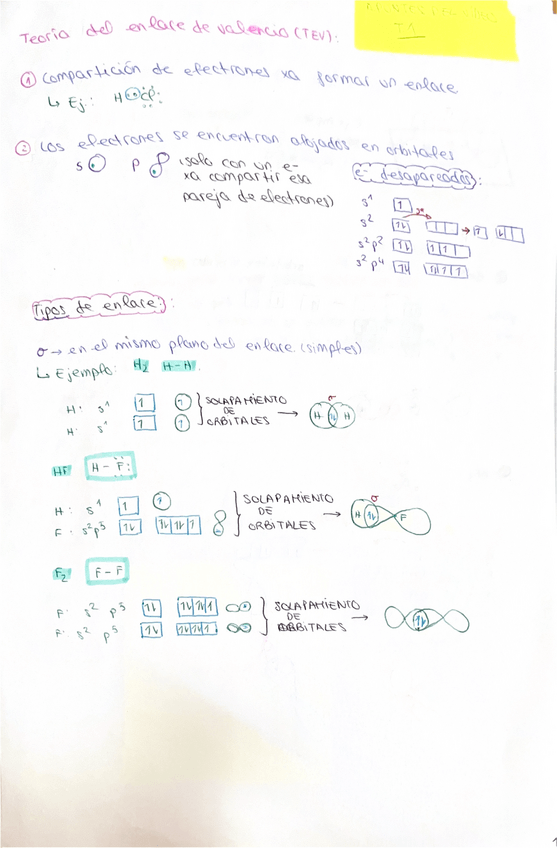 Teoría del enlace de valencia (TEV):
T1
① Compartición de electrones xa formar un enlace
↳ Ej.: H Cl
② Los electrones se encuentran alojados en orbitales
s p (solo con un e-
xa compartir esa
pareja de electrones)
e- desapareados:
s¹ 1
s² 1↓
s²p² 1↓ 1 1
s²p⁴ 1↓ 1↓ 1 1
Tipos de enlace:
σ → en el mismo plano del enlace (simples)
↳ Ejemplo: H₂ H-H
H: s¹ 1 1
H: s¹ 1 1
SOLAPAMIENTO
DE
ORBITALES → σ H 1↓ H
HF H - F:
H: s¹ 1 1
F: s²p⁵ 1↓ 1↓ 1↓ 1
SOLAPAMIENTO
DE
ORBITALES → σ H 1↓ F
F₂ F - F
F: s² p⁵ 1↓ 1↓ 1↓ 1
F: s² p⁵ 1↓ 1↓ 1↓ 1
SOLAPAMIENTO
DE
ORBITALES → 1↓